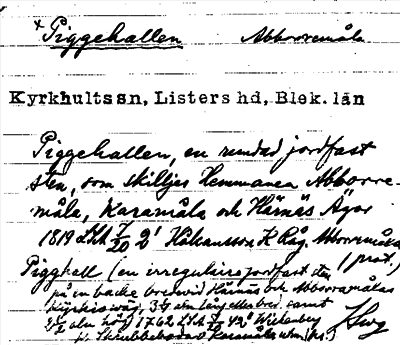 × Piggehallen Abborremåla
Kyrkhultssn, Listers hd, Blek. län
Piggehallen, en rundad jordfast
sten, som skilljes Hemmanen Abborre-
måla, Karamåla och Härnäs Ägor
1819 7/20 2' Håkansson K Råg. Abborremåla
(prot.)
Pigghall (en irregulaire jordfast sten
på en backe bredvid Härnäs och Abboramålas
Kyrkiowäg, 3 ¾ aln lång etta bred samt
aln hög) 1762 7/20 42' Wickenberg
Karamåla